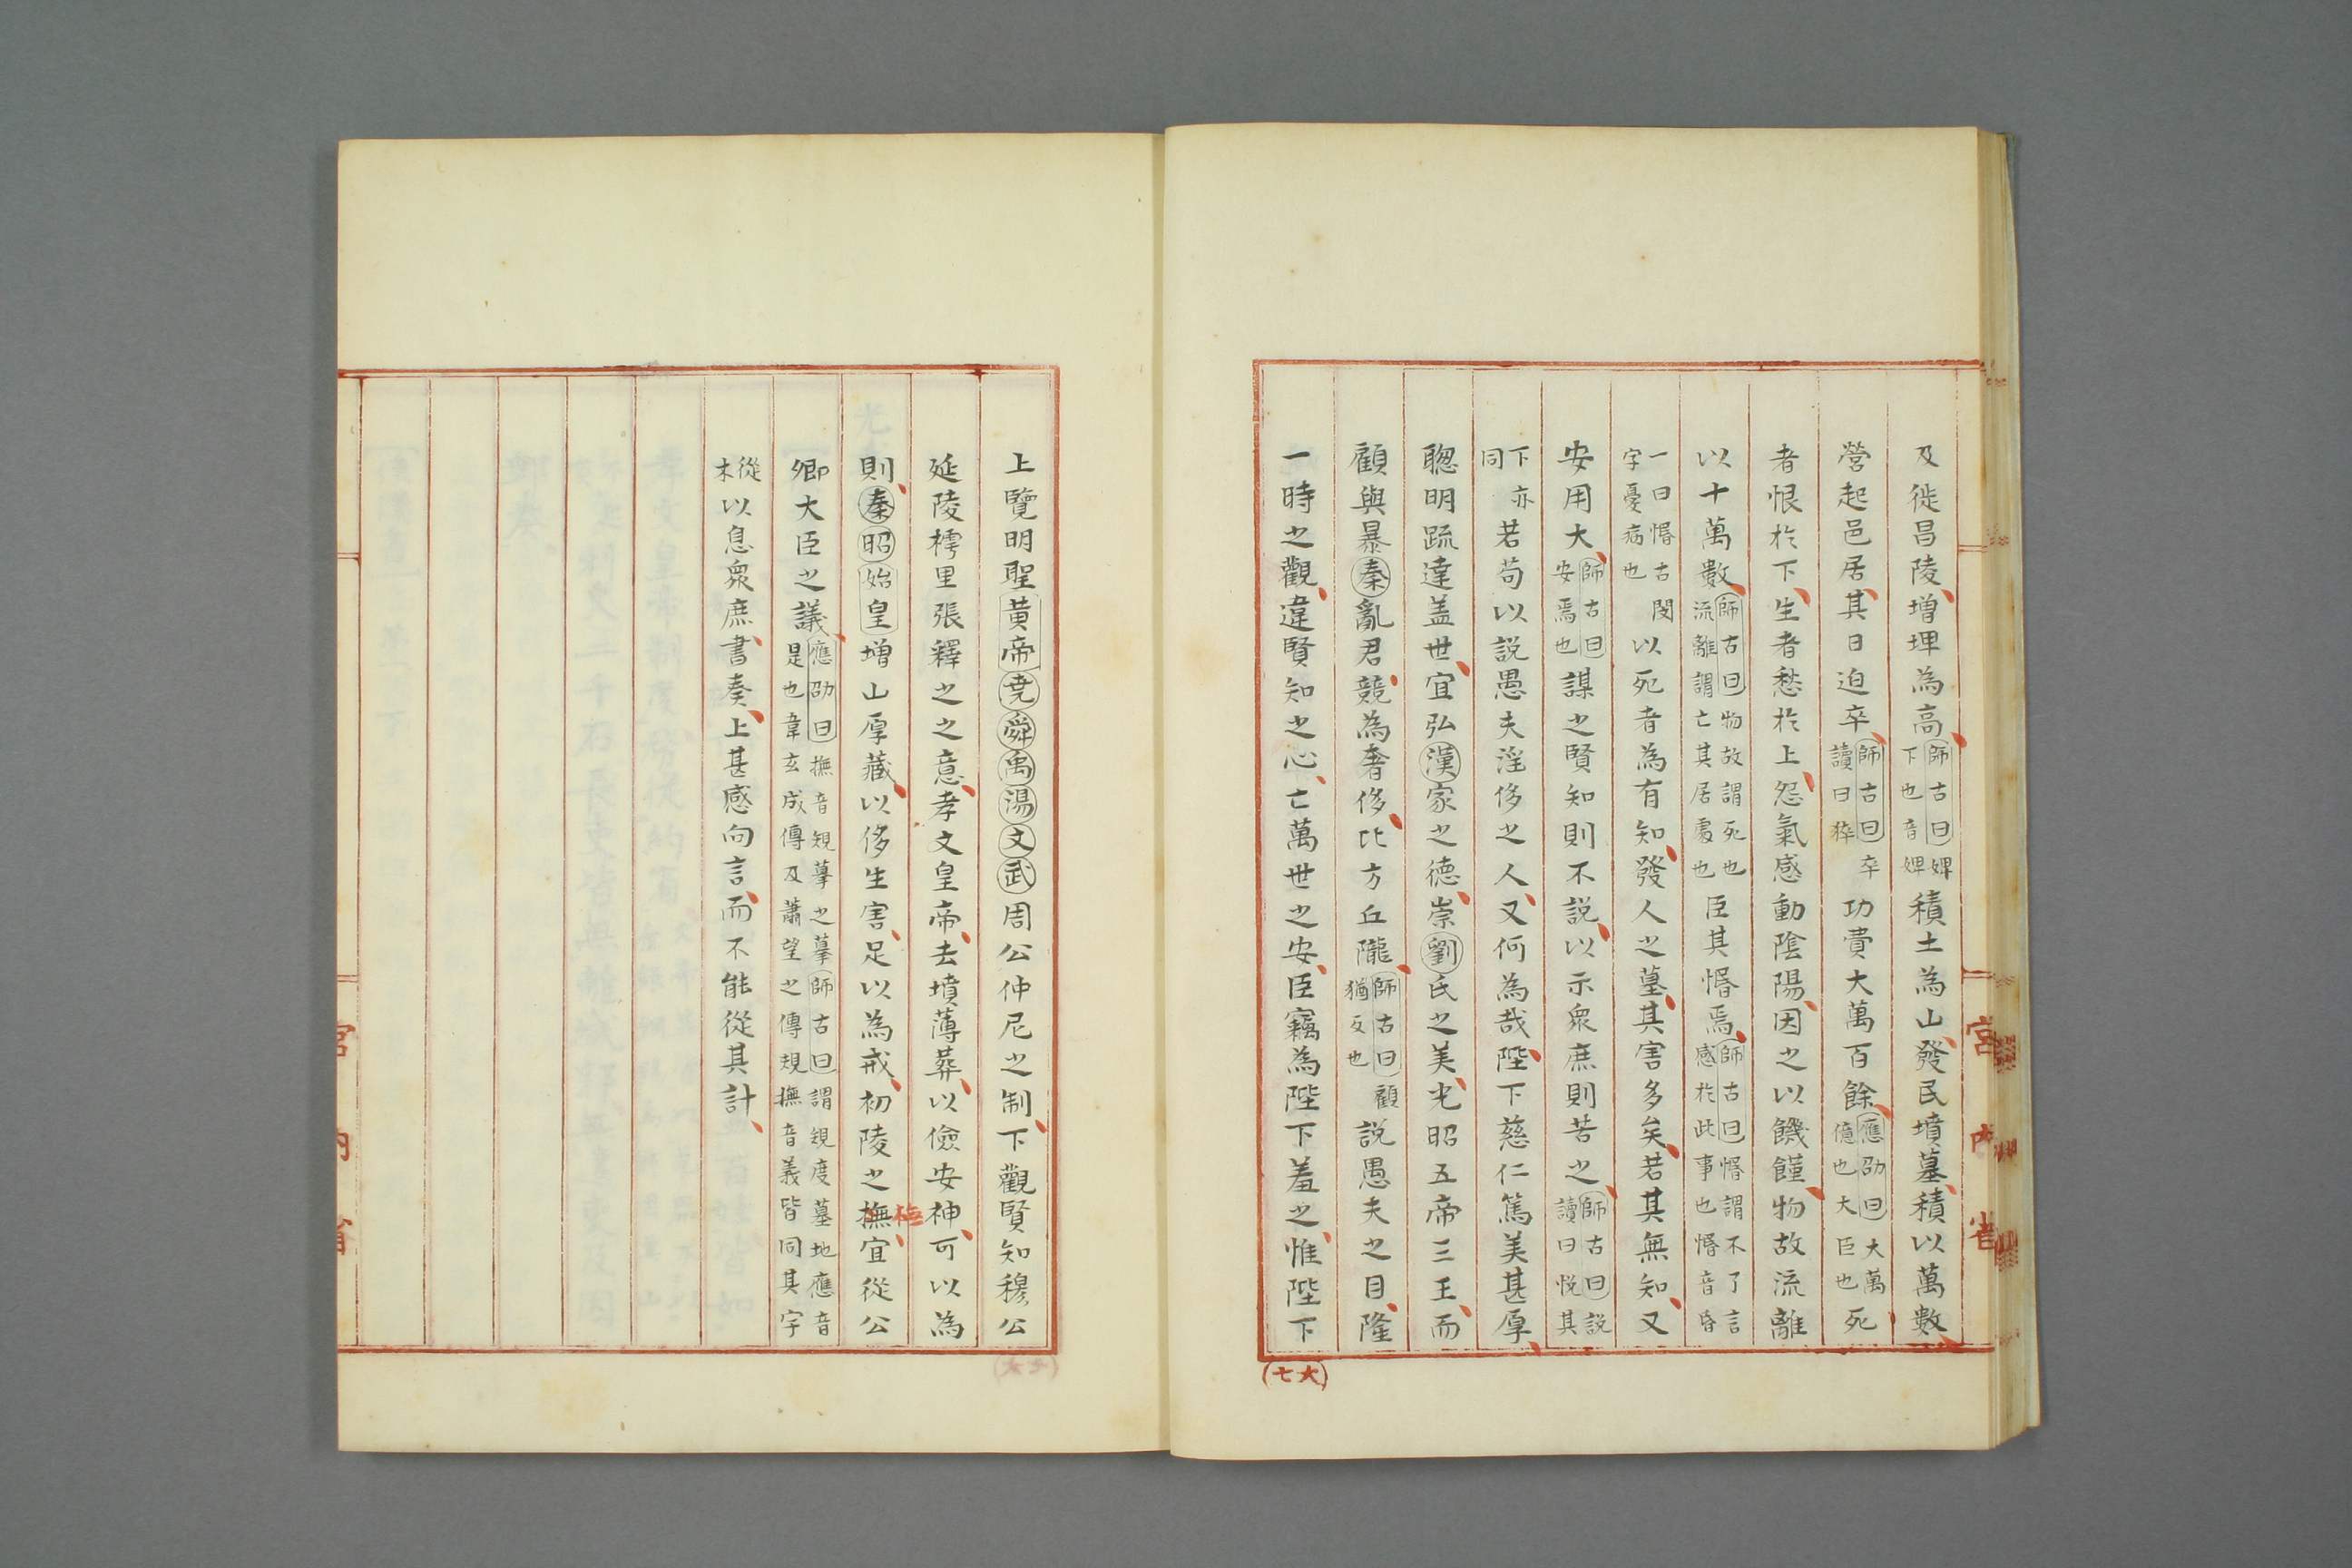 及徙昌陵増埤為高師古曰婢下也音婢積土為山發民墳墓積以萬數
營起邑居其日迫卒師古曰卒讀曰猝功費大萬百餘應劭曰大萬億也大臣也死
者恨於下生者愁於上怨氣感動陰陽因之以饑饉物故流離
以十萬數師古曰物故謂死也流離謂亡其居處也臣其惛焉師古曰惛謂不了言感於此事也惛音昏
一曰惛古閔字憂病也以死者為有知發人之墓其害多矣若其無知又
安用大師古曰安焉也謀之賢知則不説以示衆庶則苦之師古曰説讀曰悅其
下亦同若苟以説愚夫淫侈之人又何為哉陛下慈仁篤美甚厚
聰明疏達盖世宜弘漢家之德崇劉氏之美光昭五帝三王而
顧與暴秦亂君競為奢侈比方丘隴師古曰顧猶反也説愚夫之目隆
一時之觀違賢知之心亡萬世之安臣竊為陛下羞之惟陛下
(六七)
上覽明聖黄帝尭舜禹湯文武周公仲尼之制下觀賢知穆公
延陵樗里張釋之之意孝文皇帝去墳薄葬以儉安神可以為
則秦昭始皇増山厚藏以侈生害足以為戒初陵之橅宜從公
卿大臣之議應劭曰撫音規摹之摹師古曰謂規度墓地應音是也韋玄成傳及蕭望之傳規撫音義皆同其字
從木以息衆庶書奏上甚感向言而不能從其計
宮内省
宮内省